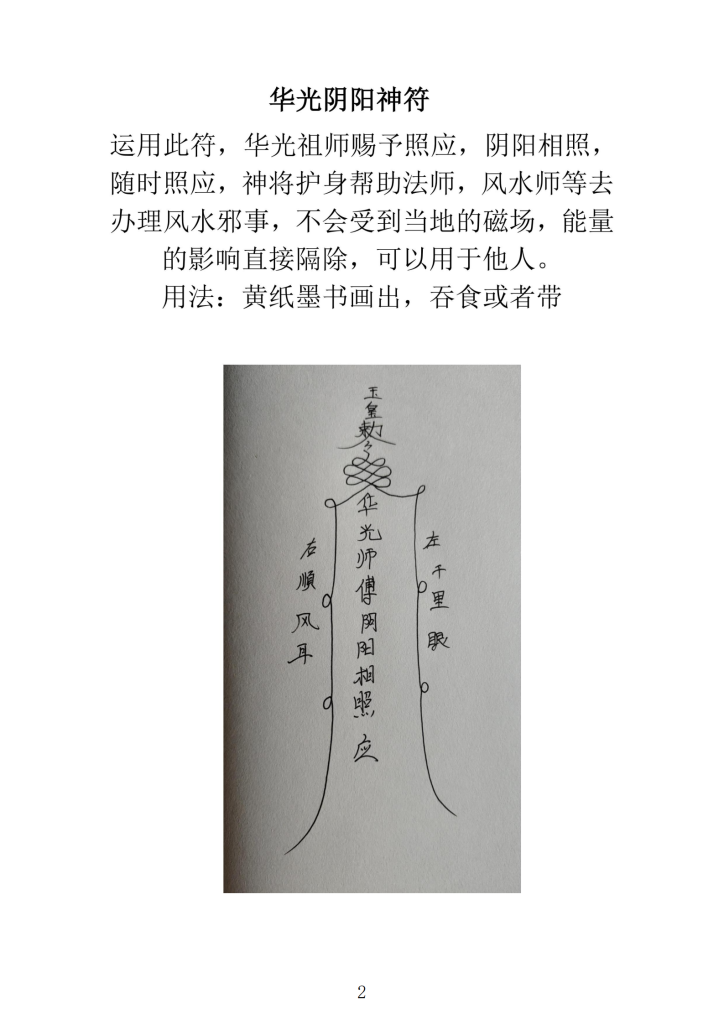 华光阴阳神符
运用此符，华光祖师赐予照应，阴阳相照，
随时照应，神将护身帮助法师，风水师等去
办理风水邪事，不会受到当地的磁场，能量
的影响直接隔除，可以用于他人。
用法：黄纸墨书画出，吞食或者带
玉皇勅令
华光师傅阴阳相照应
左千里眼
右順风耳
2